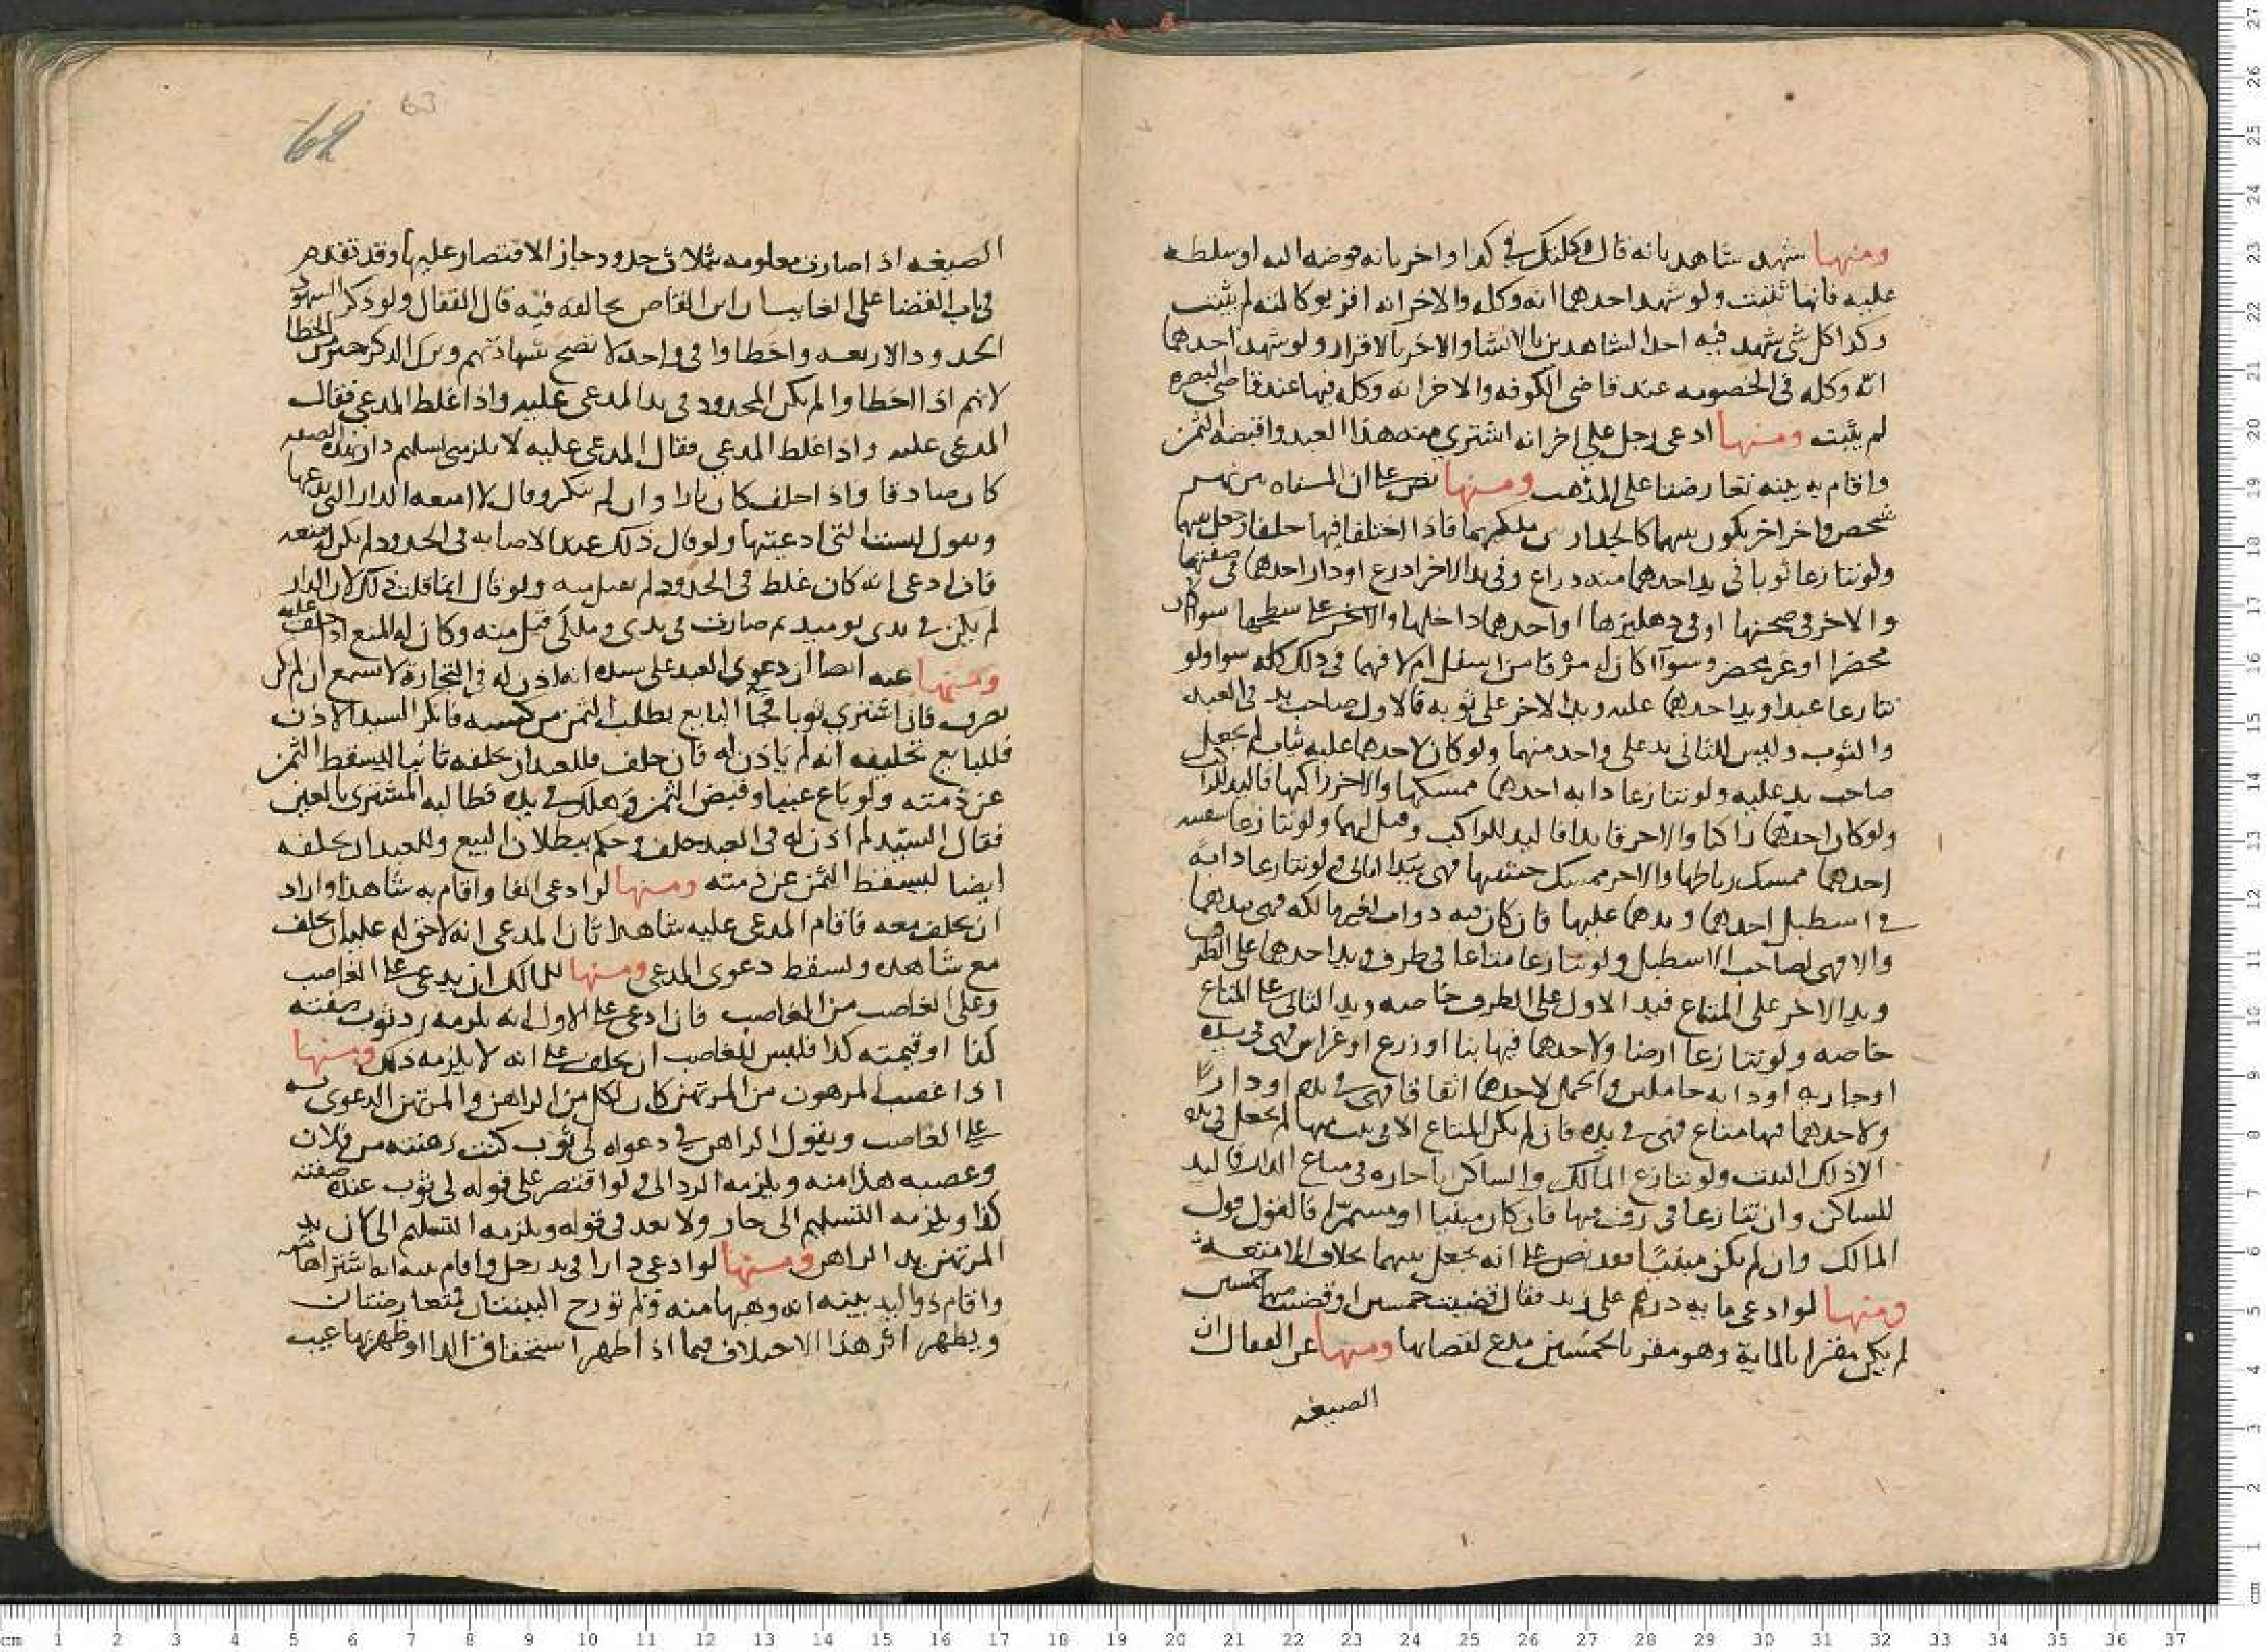 ومنها شهد شاهد بانه قال وكلتك في كدا واخر بانه فوضه اليه او سلطه
عليه فانها تثبت ولو شهد احدهما انه وكله والاخر انه اقر بوكالته لم يثبت
وكدا كل شي شهد فيه احد الشاهدين بالانشا والاخر بالاقرار ولو شهد احدهما
انه وكله في الخصومه عند قاضي الكوفه والاخر انه وكله فيها عند قاضي البصره
لم يثبت ومنها ادعى رجل على اخر انه اشتري منه هذا العبد واقبضه الثمن
واقام به بينه تعارضتا على المذهب ومنها نص على ان المسناه بين نهر
شخص واخر اخر يكون بينهما كالجدار بين ملكيهما فاذا اختلفا فيها حلفا وجعل بينهما
ولو تنازعا ثوبا في يد احدهما منه دراع وفي يد الاخر ادرع او دار احدهما في صفتها
والاخر في صحنها او في دهليزها او احدهما داخلها والاخر على سطحها سوا كان
محضرا او غير محضر وسوآ كان له مرقا من اسفل ام لا فهما في ذلك كله سوا ولو
تنازعا عبدا ويد احدهما عليه ويد الاخر على ثوبه فالاول صاحب يد في العبد
والثوب وليس للثاني يد على واحد منهما ولو كان لاحدهما عليه ثياب لم يجعل
صاحب يد عليه ولو تنازعا دابه احدهما ممسكها والاخر راكبها فاليد للراكب
ولو كان احدهما راكبا والاخر قايدا فاليد للراكب وقيل لهما ولو تنازعا سفينه
احدهما ممسك رباطها والاخر ممسك خشبها فهي بيد الثاني ولو تنازعا دابه
في اسطبل احدهما ويدهما عليها فان كان فيه دواب لغير مالكه فهي بيدهما
والا فهي لصاحب الاسطبل ولو تنازعا متاعا في ظرف ويد احدهما على الظرف
ويد الاخر على المتاع فيد الاول على الظرف خاصه ويد الثاني على المتاع
خاصه ولو تنازعا ارضا ولاحدهما فيها بنا او زرع او غراس فهي في يده
او جاريه او دابه حاملين والحمل لاحدهما اتفاقا فهي في يده او دارا
ولاحدهما فيها متاع فهي في يده فان لم يكن المتاع الا في بيت منها لم يجعل في يده
الا ذلك البيت ولو تنازع المالك والساكن باجاره في متاع الدار فاليد
للساكن وان تنازعا في رف فيها فان كان مبنيا او مسمرا فالقول قول
المالك وان لم يكن مبنيا فقد نص على انه يجعل بينهما بخلاف الامتعه
ومنها لو ادعى مايه درهم على زيد فقال قضيت خمسين او قضيت منها خمسين
لم يكن مقرا بالماية وهو مقر بالخمسين مدع لقضايها ومنها عن القفال ان
الصيغه
62
63
الصيغه اذا صارت معلومه بثلاث حدود جاز الاقتصار عليها وقد تقدم
في باب القضا على الغايب ان ابن القاص يخالفه فيه قال القفال ولو ذكر الشهود
الحدود الاربعه واخطاوا في واحد لا تصح شهادتهم وترك الذكر خير من الخطا
لانهم اذا اخطاوا لم يكن المحدود في يد المدعى عليه واذا غلط المدعي فقال
المدعى عليه واذا غلط المدعي فقال المدعى عليه لا يلزمني تسليم دار بهذه الصفه
كان صادقا واذا حلف كان بارا وان لم ينكر وقال لا امنعه الدار التي يدعيها
ويقول ليست التي ادعيتها ولو قال ذلك عند الاصابه في الحدود لم يكن له منعه
فان ادعى انه كان غلط في الحدود لم يقبل منه ولو قال انما قلت ذلك لان الدار
لم يكن في يدي يوميذ ثم صارت في يدي وملكي قبل منه وكان له المنع اذا حلف عليه
ومنها عنه ايضا ان دعوى العبد على سيده انه اذن له في التجارة لا تسمع ان لم يكن
تصرف فان اشتري ثوبا فجا البايع يطلب الثمن من كسبه فانكر السيد الاذن
فللبايع تحليفه انه لم ياذن له فان حلف فللعبد ان يحلفه ثانيا ليسقط الثمن
عن ذمته ولو باع عينا وقبض الثمن وهلك في يده فطالبه المشتري بالعين
فقال السيد لم اذن له في العبد حلف وحكم ببطلان البيع وللعبد ان يحلفه
ايضا ليسقط الثمن عن ذمته ومنها لو ادعى الفا واقام به شاهدا واراد
ان يحلف معه فاقام المدعى عليه شاهدا بان المدعي انه لا حق له عليه ان يحلف
مع شاهده ويسقط دعوى المدعي ومنها للمالك ان يدعي على الغاصب
وعلى الغاصب من الغاصب فان ادعى على الاول انه يلزمه رد ثوب صفته
كذا او قيمته كذا فليس للغاصب ان يحلف على انه لا يلزمه ذلك ومنها
اذا غصب المرهون من المرتهن كان لكل من الراهن والمرتهن الدعوى به
على الغاصب ويقول الراهن في دعواه لي ثوب كنت رهنته من فلان
وغصبه هذا منه ويلزمه الرد الي ولو اقتصر على قوله لي ثوب عنده صفته
كذا ويلزمه التسليم الى جاز ولا يعد في قوله ويلزمه التسليم الي كان يد
المرتهن يد الراهن ومنها لو ادعى دارا في يد رجل واقام بينه انه اشتراها منه
واقام ذو اليد بينه انه وهبها منه ولم تورخ البينتان فتعارضتان
ويظهر اثر هذا الاختلاف فيما اذا ظهر استحقاق الدار او ظهر بها عيب